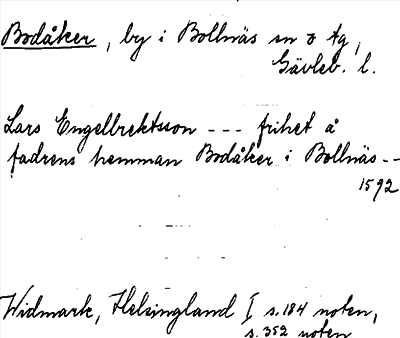 Bodåker, by i Bollnäs sn o tg,
Gävleb. l.
Lars Engelbrektsson --- frihet å
fadrens hemman Bodåker i Bollnäs--
1592
Widmark, Helsingland I s.184 noten,
s.352 noten